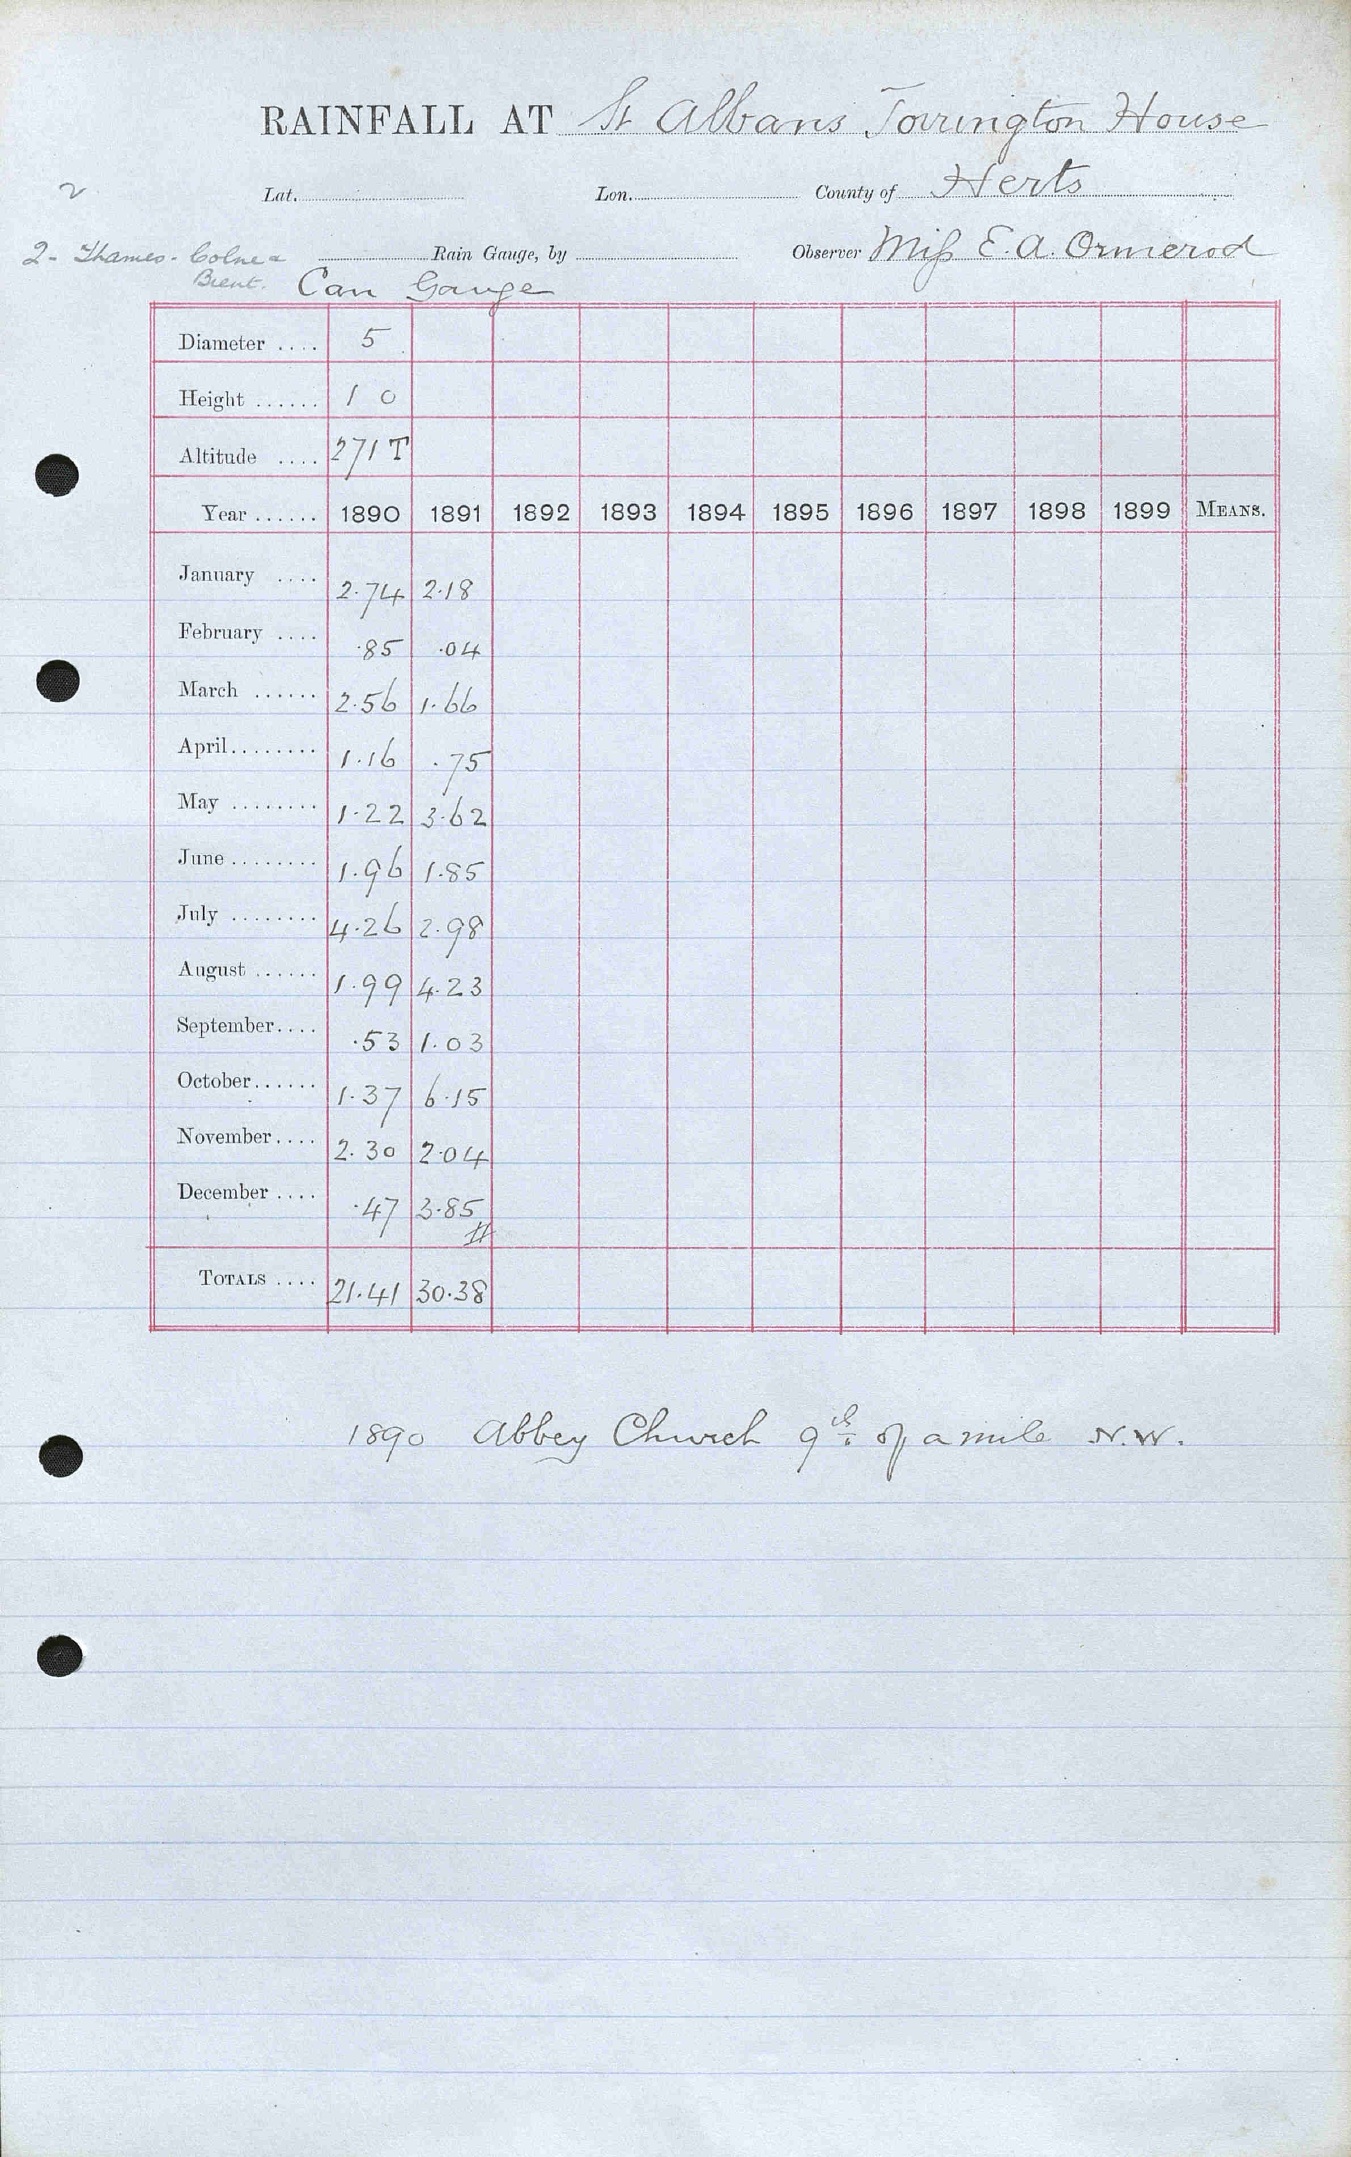 RAINFALL AT St Albans Torrington House
2
Lat. Lon. County of Herts
2- Thames - Colne & Rain Gauge, by Observer Miss E. A. Ormerod
Brent. Can Gauge
Diameter .... 5
Height ...... 1 0
Altitude .... 271 T
Year ...... 1890 1891 1892 1893 1894 1895 1896 1897 1898 1899 MEANS.
January .... 2.74 2.18
February .... .85 .04
March ...... 2.56 1.66
April........ 1.16 .75
May ........ 1.22 3.62
June ........ 1.96 1.85
July ........ 4.26 2.98
August ...... 1.99 4.23
September.... .53 1.03
October...... 1.37 6.15
November.... 2.30 2.04
December .... .47 3.85
TOTALS .... 21.41 30.38
1890 Abbey Church 9th of a mile N.W.